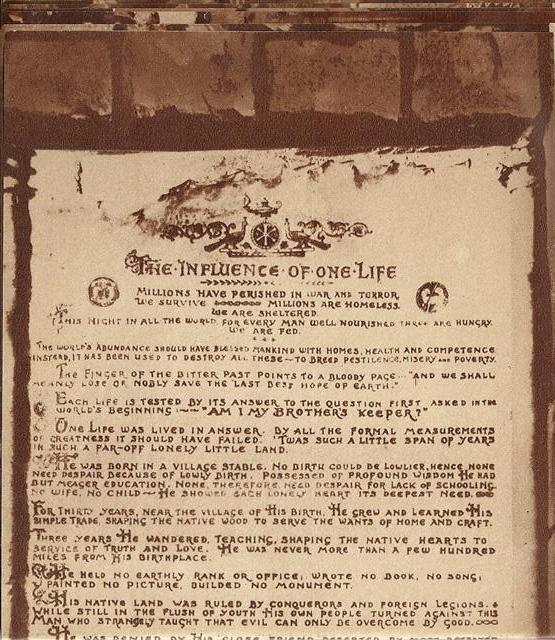 THE·INFLUENCE·OF·ONE·LIFE
MILLIONS HAVE PERISHED IN WAR AND TERROR.
WE SURVIVE MILLIONS ARE HOMELESS.
WE ARE SHELTERED.
THIS NIGHT IN ALL THE WORLD, FOR EVERY MAN WELL NOURISHED THREE ARE HUNGRY.
WE ARE FED.
THE WORLD'S ABUNDANCE SHOULD HAVE BLESSED MANKIND WITH HOMES, HEALTH AND COMPETENCE
INSTEAD, IT HAS BEEN USED TO DESTROY ALL THESE~TO BREED PESTILENCE, MISERY AND POVERTY.
THE FINGER OF THE BITTER PAST POINTS TO A BLOODY PAGE~"AND WE SHALL
MEANLY LOSE OR NOBLY SAVE THE LAST BEST HOPE OF EARTH."
EACH LIFE IS TESTED BY ITS ANSWER TO THE QUESTION FIRST ASKED IN THE
WORLD'S BEGINNING ~~ "AM I MY BROTHER'S KEEPER?"
ONE LIFE WAS LIVED IN ANSWER. BY ALL THE FORMAL MEASUREMENTS
OF GREATNESS IT SHOULD HAVE FAILED. 'TWAS SUCH A LITTLE SPAN OF YEARS
IN SUCH A FAR-OFF LONELY LITTLE LAND.
HE WAS BORN IN A VILLAGE STABLE. NO BIRTH COULD BE LOWLIER, HENCE NONE
NEED DESPAIR BECAUSE OF LOWLY BIRTH. POSSESSED OF PROFOUND WISDOM HE HAD
BUT MEAGER EDUCATION. NONE, THEREFORE, NEED DESPAIR FOR LACK OF SCHOOLING.
NO WIFE, NO CHILD~HE SHOWED EACH LONELY HEART ITS DEEPEST NEED.
FOR THIRTY YEARS, NEAR THE VILLAGE OF HIS BIRTH, HE GREW AND LEARNED HIS
SIMPLE TRADE, SHAPING THE NATIVE WOOD TO SERVE THE WANTS OF HOME AND CRAFT.
THREE YEARS HE WANDERED, TEACHING, SHAPING THE NATIVE HEARTS TO
SERVICE OF TRUTH AND LOVE. HE WAS NEVER MORE THAN A FEW HUNDRED
MILES FROM HIS BIRTHPLACE.
HE HELD NO EARTHLY RANK OR OFFICE; WROTE NO BOOK, NO SONG;
PAINTED NO PICTURE, BUILDED NO MONUMENT.
HIS NATIVE LAND WAS RULED BY CONQUERORS AND FOREIGN LEGIONS. &
WHILE STILL IN THE FLUSH OF YOUTH HIS OWN PEOPLE TURNED AGAINST THIS
MAN WHO STRANGELY TAUGHT THAT EVIL CAN ONLY BE OVERCOME BY GOOD.
HE WAS DENIED BY HIS CLOSE FRIEND, DESERTED BY MOST